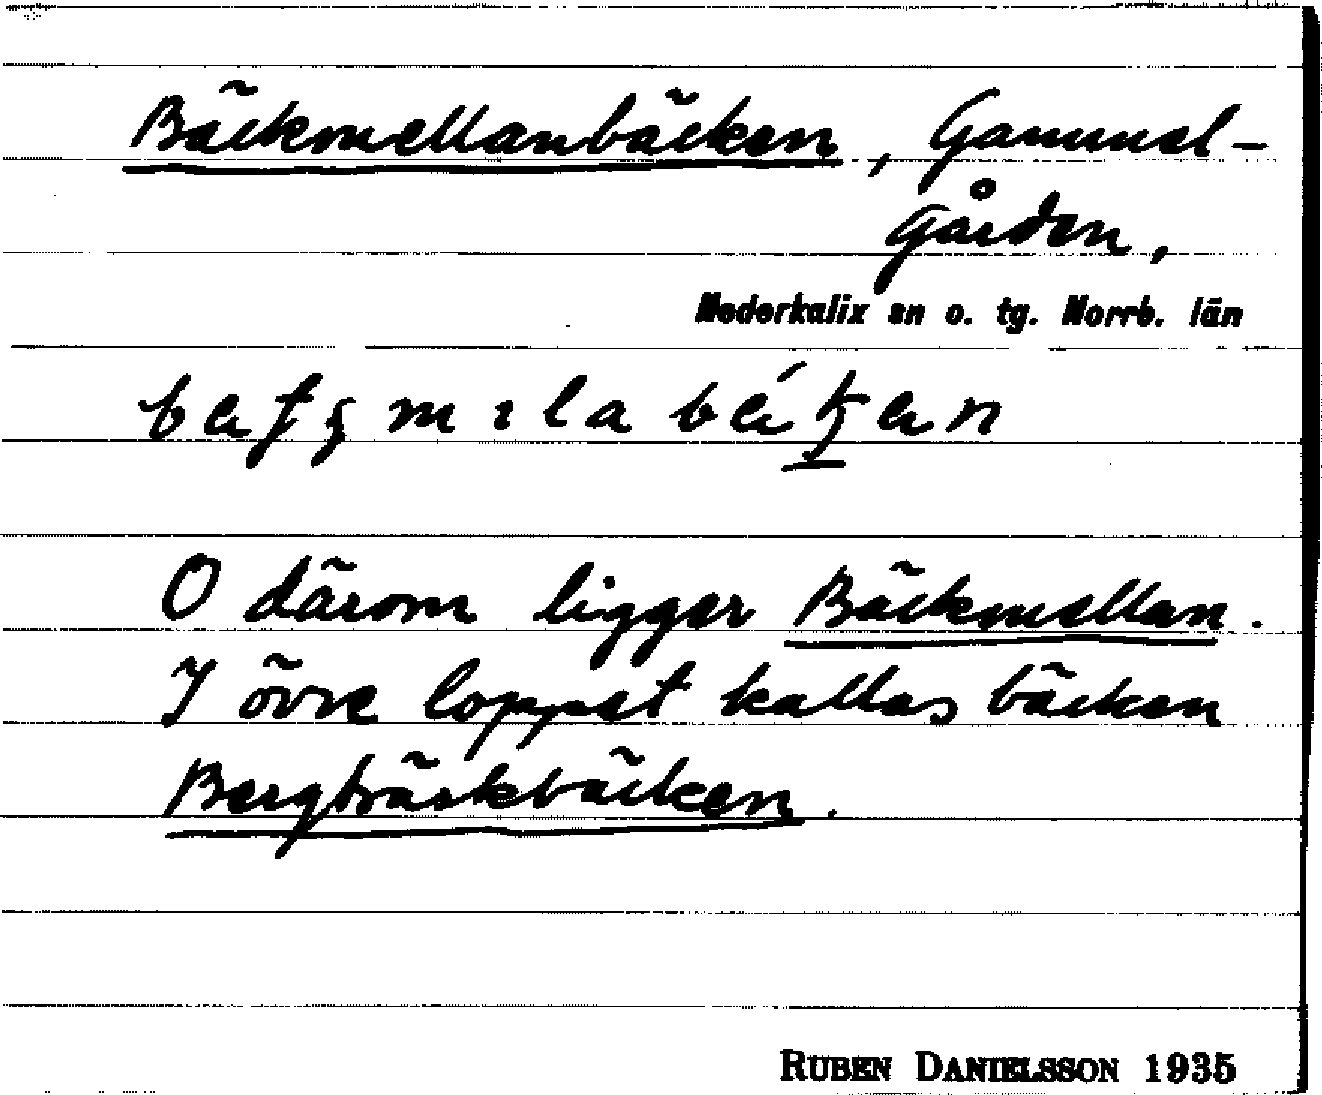 Bäckmellanbäcken, Gammel-
gården,
Nederkalix sn o. tg. Norrb. län
O därom ligger Bäckmellan.
I övre loppet kallas bäcken
Bergträskbäcken.
RUBEN DANIELSSON 1935